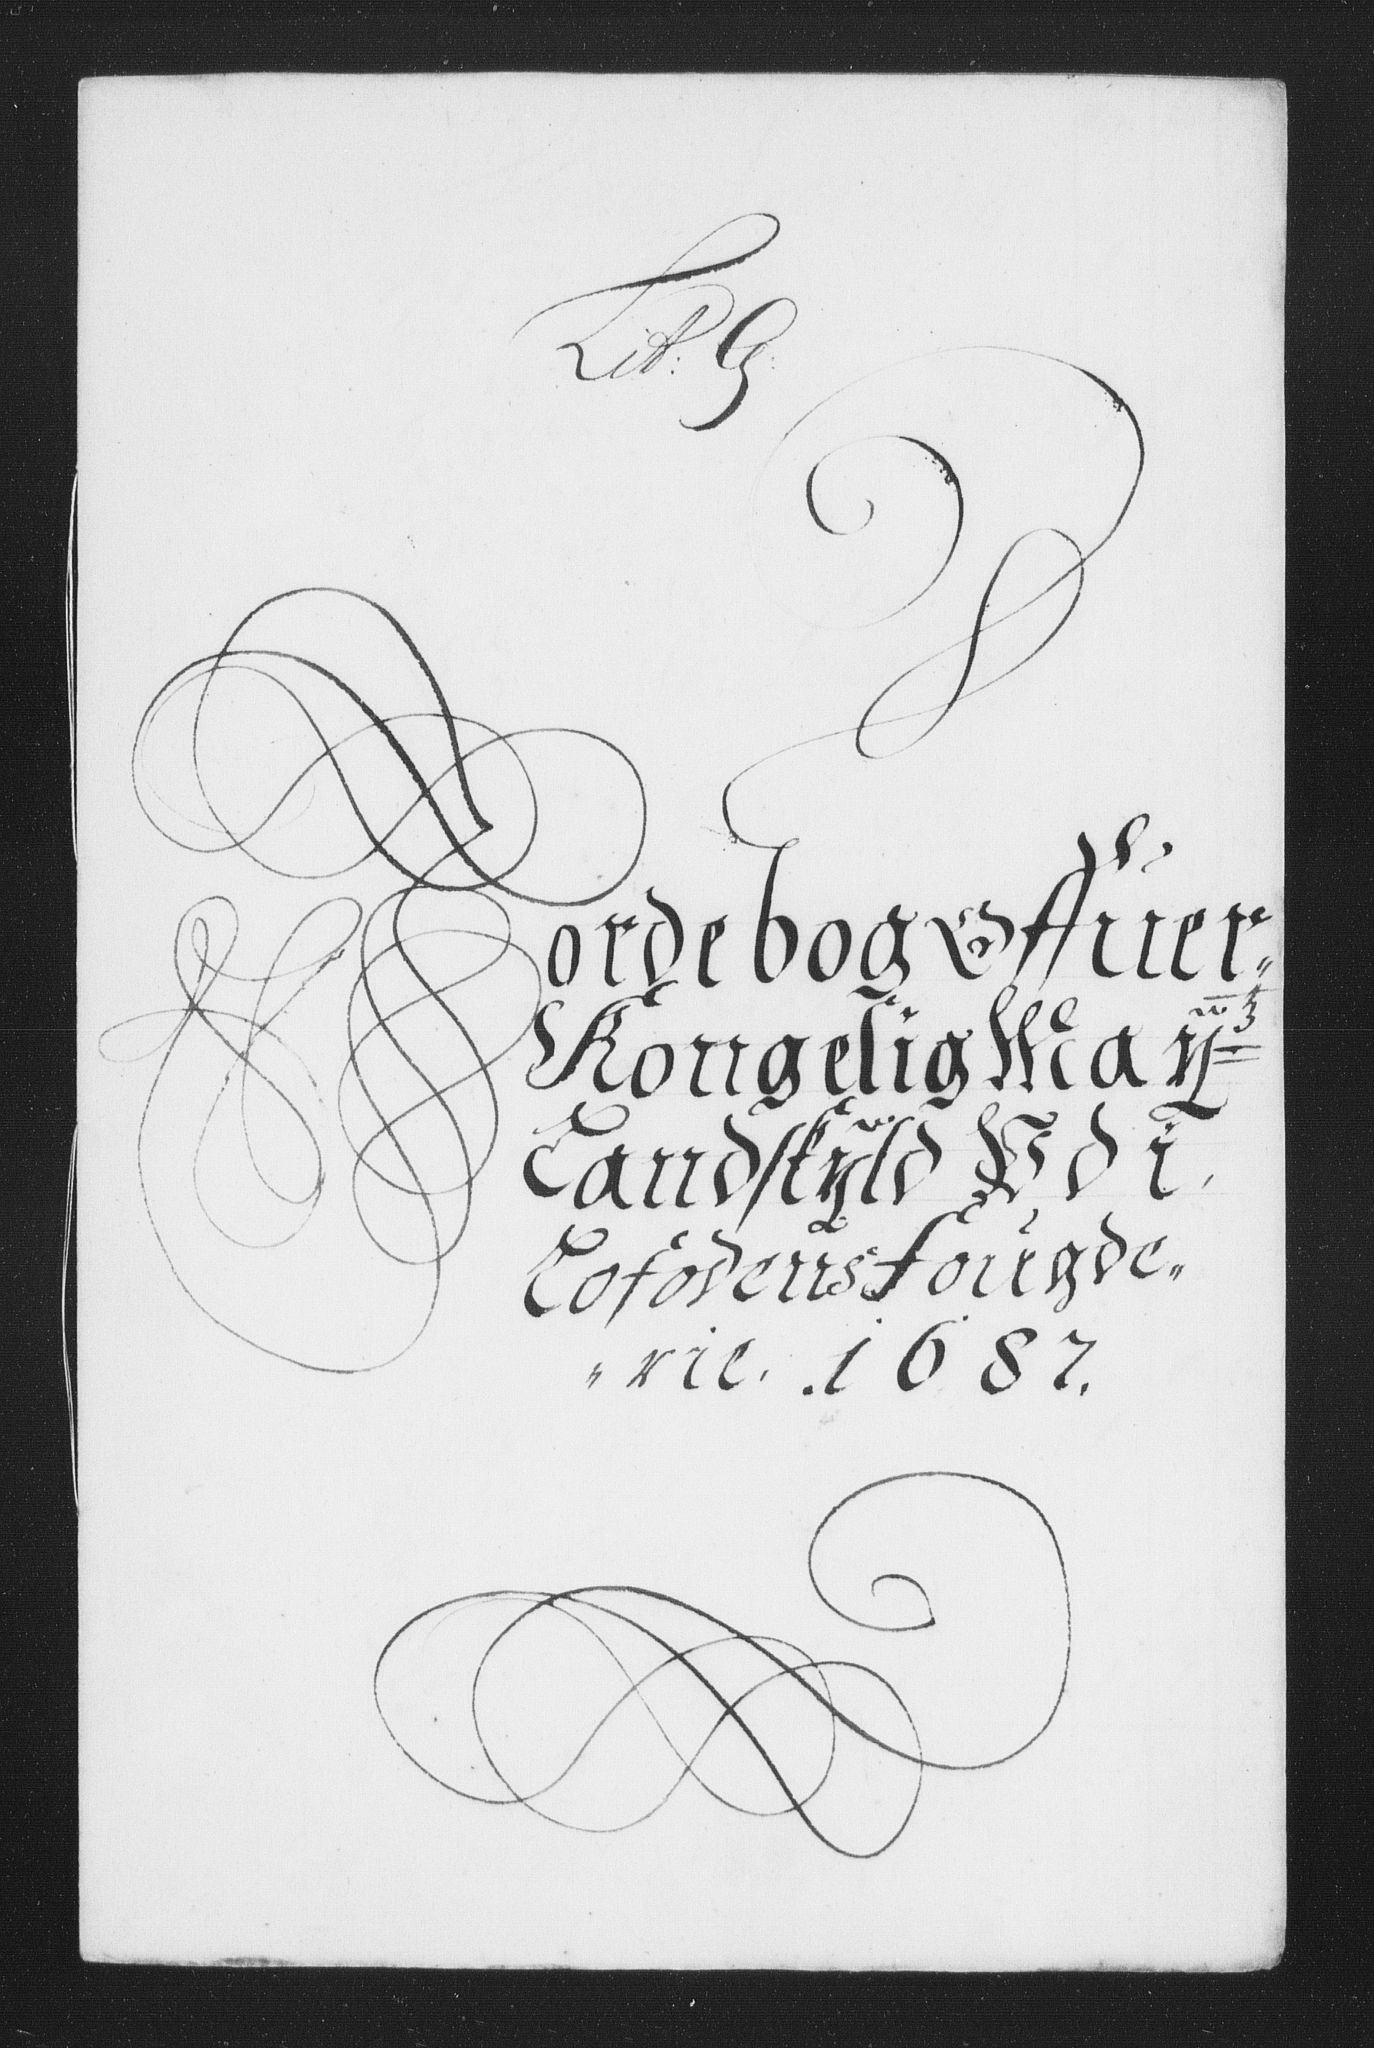 Lit: G:
Jordebog Offuer
Kongelig Maÿ:tz
Landskÿld Udi
Lofodens fougde„
„rie. .1687.